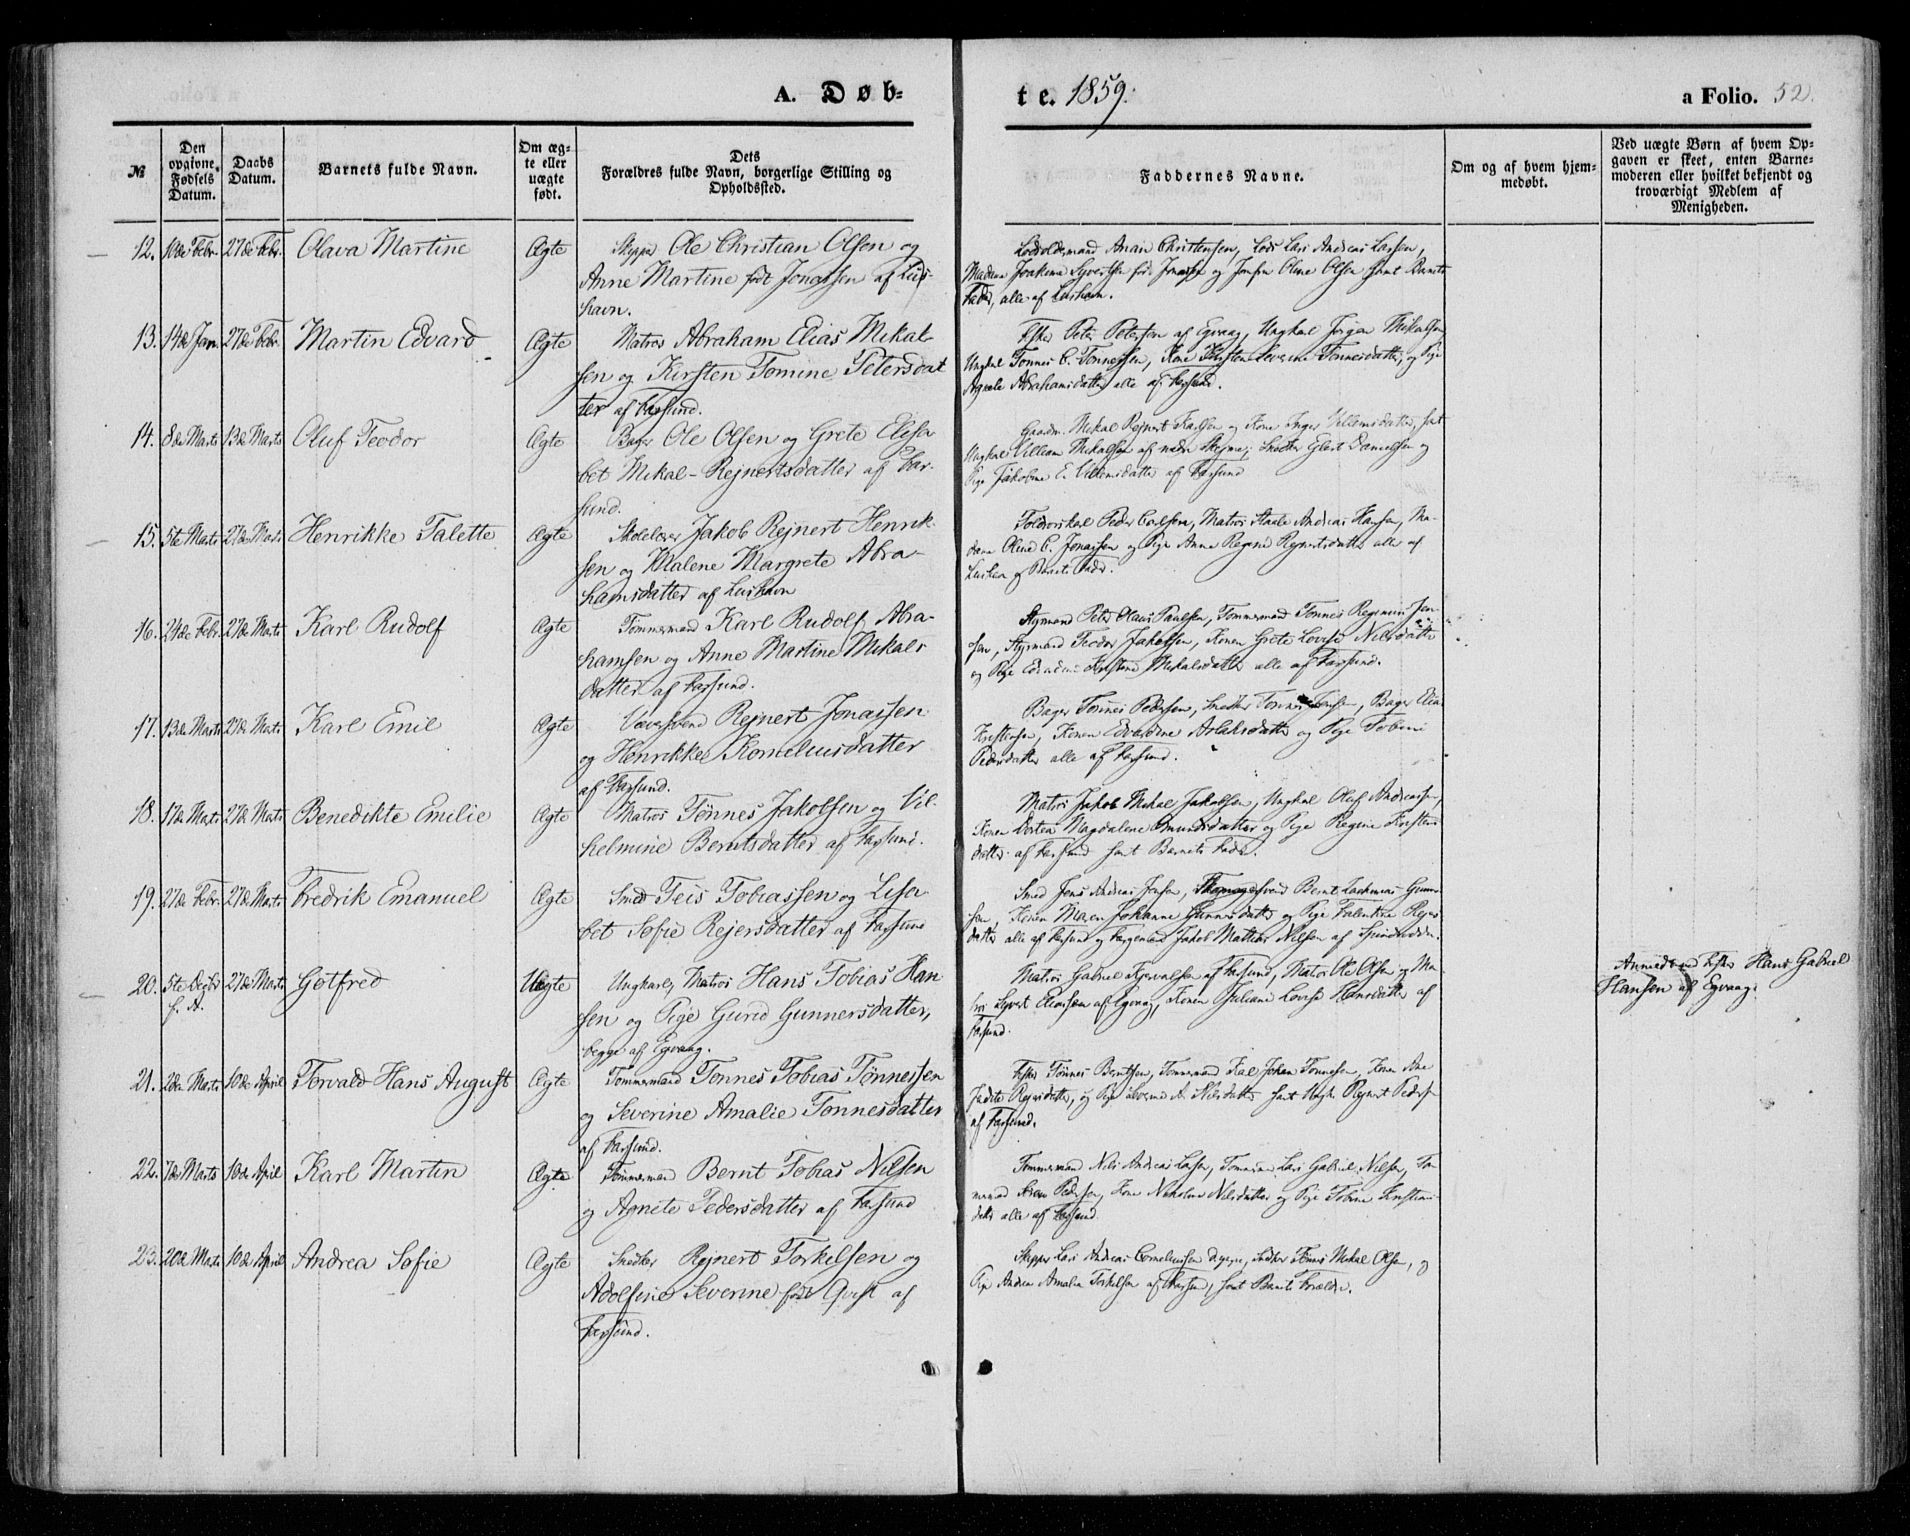 A. Døb-
te. 1859.
a Folio. 52.
№
Den opgivne Fødsels Datum.
Daabs Datum.
Barnets fulde Navn.
Om ægte eller uægte født.
Dets Forældres fulde Navn, borgerlige Stilling og Opholdssted.
Faddernes Navne.
Om og af hvem hjemmedøbt.
Ved uægte Børn af hvem Opgaven er skeet, enten Barnemoderen eller hvilket bekjendt og troværdigt Medlem af Menigheden.
12. 10de Febr. 27de Febr. Olava Martine Ægte Skipper Ole Christian Olsen og
Anne Martine født Jonassen af Lus-
havn.
Lodsoldermand Anan Christensen, Lods Lars Andreas Larsen,
Madame Joakime Syvertsen født Jonassen og Jomfru Oline Olsen samt Barnets
Fader, alle af Lushavn.
13. 14de Jan. 27de Febr. Martin Edvard Ægte Matros Abraham Elias Mikal-
sen og Kirsten Tomine Petersdat
ter af Farsund.
Fisker Peter Petersen af Egvaag, Ungkarl Jørgen Mikalsen,
Ungkarl Tønnes C. Tønnessen, Kone Kirsten Severine Tønnesdatter, og Pige
Agnete Abrahamsdatter alle af Farsund.
14. 8de Marts 13de Marts Oluf Teodor Ægte Bager Ole Olsen og Grete Elisa
bet Mikal-Rejnertsdatter af Far-
sund.
Gaardm. Mikal Rejnert Karlsen og Kone Inger Villemsdatter, samt
Ungkarl Villem Mikalsen af nedre Skeime, Snedker Eilert Danielsen og
Pige Jakobine E. Villemsdatter af Farsund
15. 5te Marts 27de Marts Henrikke Talette Ægte Skolelærer Jakob Rejnert Henrik
sen og Malene Margrete Abra-
hamsdatter af Lushavn
Toldrorskarl Peder Carlsen, Matros Staale Andreas Hansen, Ma-
dame Oline C. Jonassen og Pige Anne Regine Rejnertsdatter alle af
Lushavn og Barnets Fader.
16. 24de Febr. 27de Marts Karl Rudolf Ægte Tømmermand Karl Rudolf Abra-
hamsen og Anne Martine Mikals
datter af Farsund.
Styrmand Peter Olaus Paulsen, Tømmermand Tønnes Regimius Jen-
sen, Styrmand Teodor Jakobsen, Konen Grete Lovise Nilsdatter
og Pige Kirstine Mikalsdatter alle af Farsund.
17. 13de Marts 27de Marts Karl Emil Ægte Væversvend Rejnert Jonassen
og Henrikke Korneliusdatter
af Farsund.
Bager Tønnes Pedersen, Snedker Tønnes Jensen, Bager Elias
Kristensen, Konen Edvardine Aslaksdatter og Pige Tobine
Pedersdatter alle af Farsund.
18. 17de Marts 27de Marts Benedikte Emilie Ægte Matros Tønnes Jakobsen og Vil-
helmine Berntsdatter af Farsund.
Matros Jakob Mikal Jakobsen, Ungkarl Oluf Andreassen,
Konen Dortea Magdalene Omundsdatter og Pige Regine Kristens
datter af Farsund samt Barnets Fader.
19. 27de Febr. 27de Marts Fredrik Emanuel Ægte Smed Teis Tobiassen og Lisa
bet Sofie Rejersdatter af Farsund
Smed Jens Andreas Jensen, Bernt Zacharias Gunder-
sen, Konen Maren Johanne Gunnersdatter og Pige Valentine Rejers
datter alle af Farsund og Jakob Matias Nilsen af
20. 5te Decbr f. A. 27de Marts Gotfred Uægte Ungkarl, Matros Hans Tobias Han
sen og Pige Gurid Gunnersdatter,
begge af Egvaag.
Matros Gabriel af Farsund, Matros Ole Olsen og Ma-
tros Syvert Eliassen af Egvaag, Konen Juliane Lovise Hansdatter af
Farsund.
Anmeldt ved Fisker Hans Gabriel
Hansen af Egvaag.
21. 2den Marts 10de April Torvald Hans August Ægte Tømmermand Tønnes Tobias Tønnessen
og Severine Amalie Tønnesdatter
af Farsund.
Fisker Tønnes Berntsen, Tømmermand Karl Johan Tønnesen, Konen Ane
Rejersdatter, og Pige Severine A. Nilsdatter samt Ungk. Rejnert Peders
af Farsund.
22. 7de Marts 10de April Karl Martin Ægte Tømmermand Bernt Tobias Nilsen
og Agnete Pedersdatter af Farsund
Tømmermand Nils Andreas Larsen, Lars Gabriel Nilsen, Tøm-
mermand Pedersen, Kone Nilsdatter og Pige Tobine Kristians
datter alle af Farsund.
23. 20de Marts 10de April Andrea Sofie Ægte Snedker Rejnert Torkelsen og
Adolfine Severine født Qvist af
Farsund.
Skipper Lars Andreas Corneliussen Snedker Tønnes Mikal Olsen, og
Pige Andrea Amalia Torkelsen af Farsund, samt Barnets Forældre.